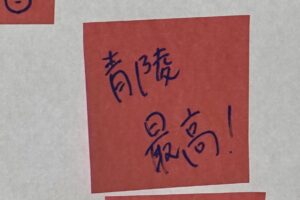 青陵
最高!